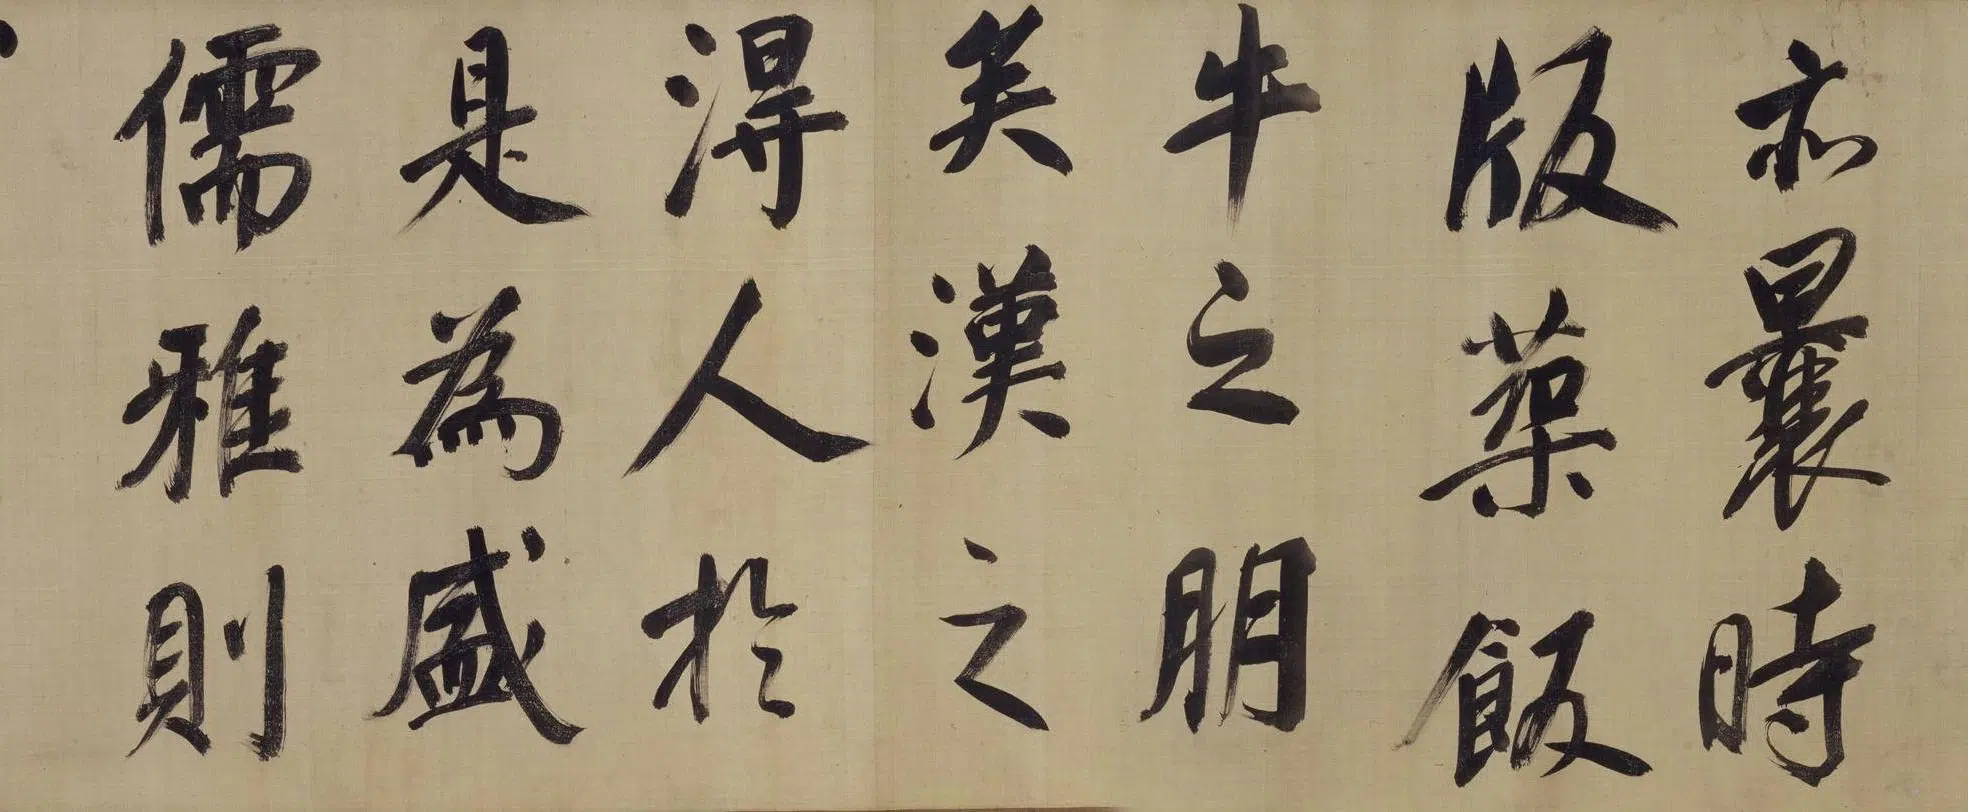 亦曩時
版築飯
牛之朋
矣漢之
得人於
是為盛
儒雅則